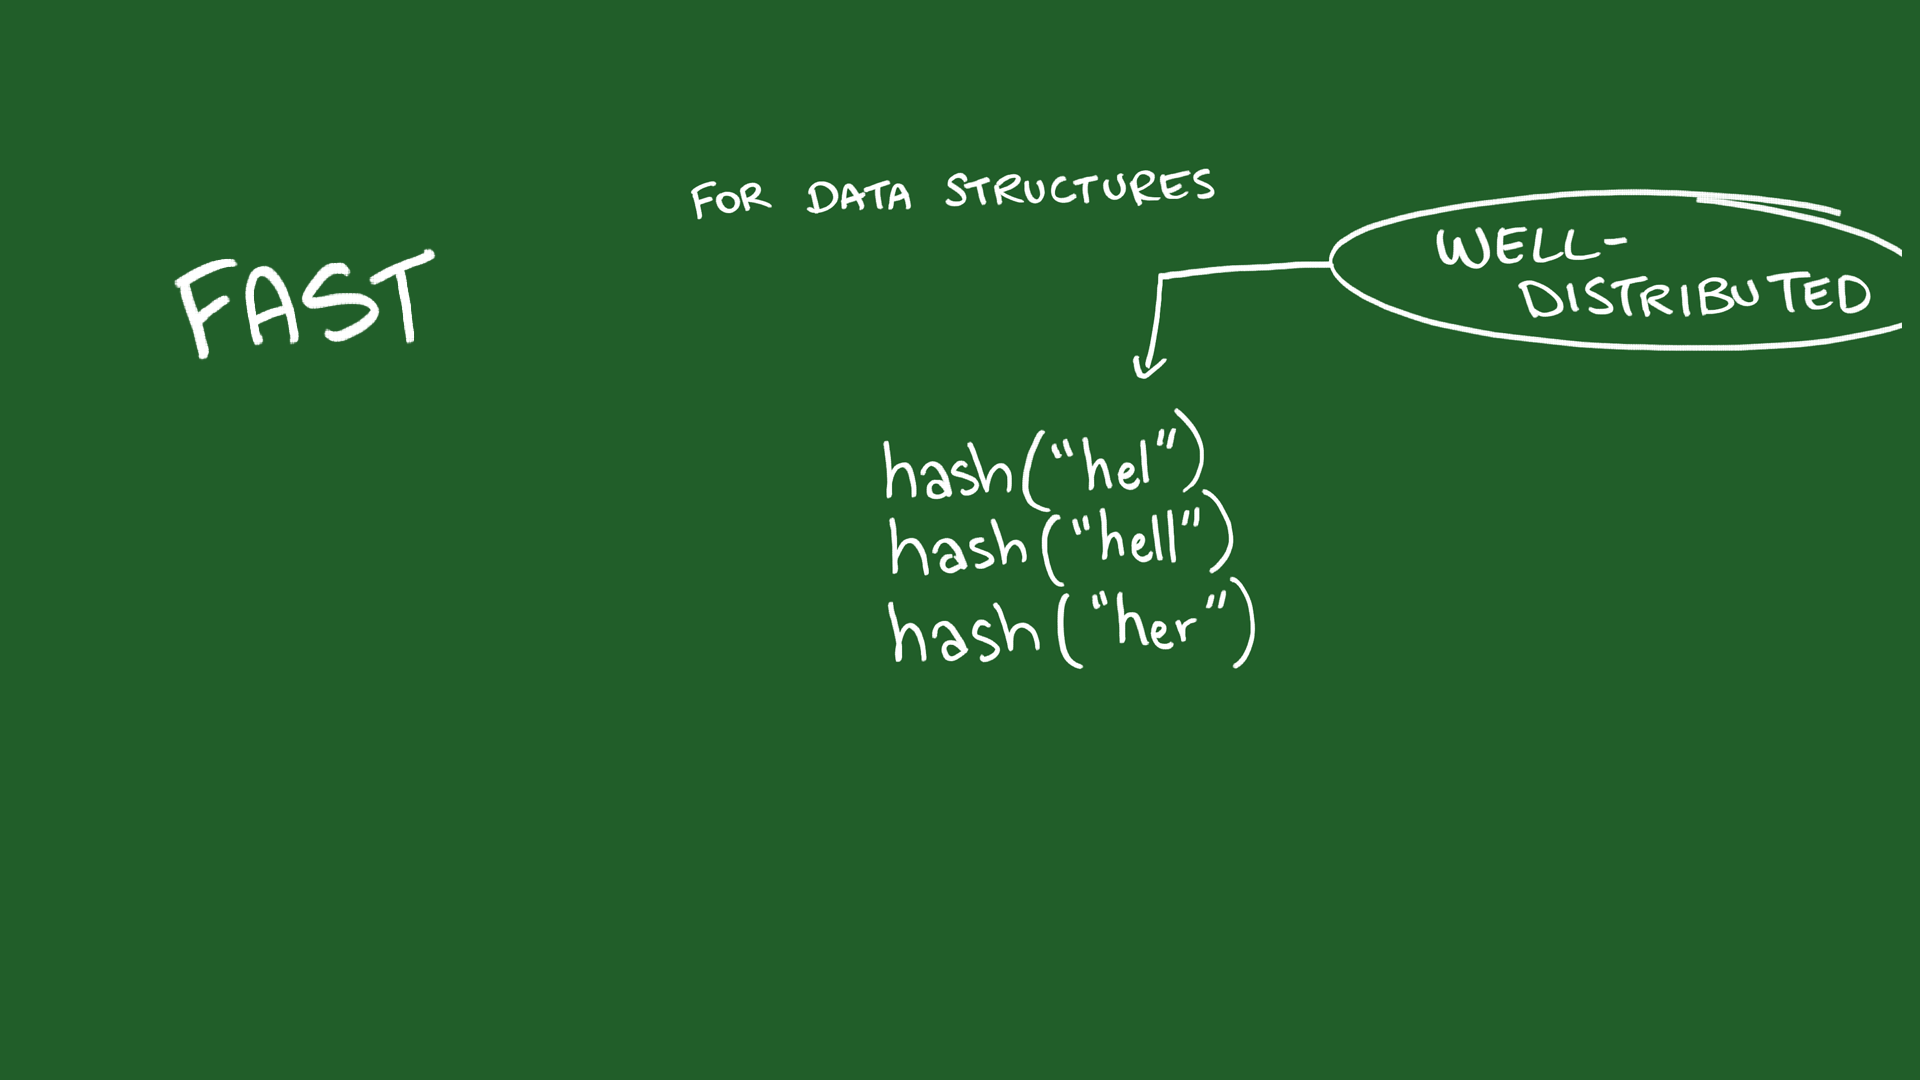 FOR DATA STRUCTURES
FAST
WELL-
DISTRIBUTED
hash("hel")
hash("hell")
hash("her")